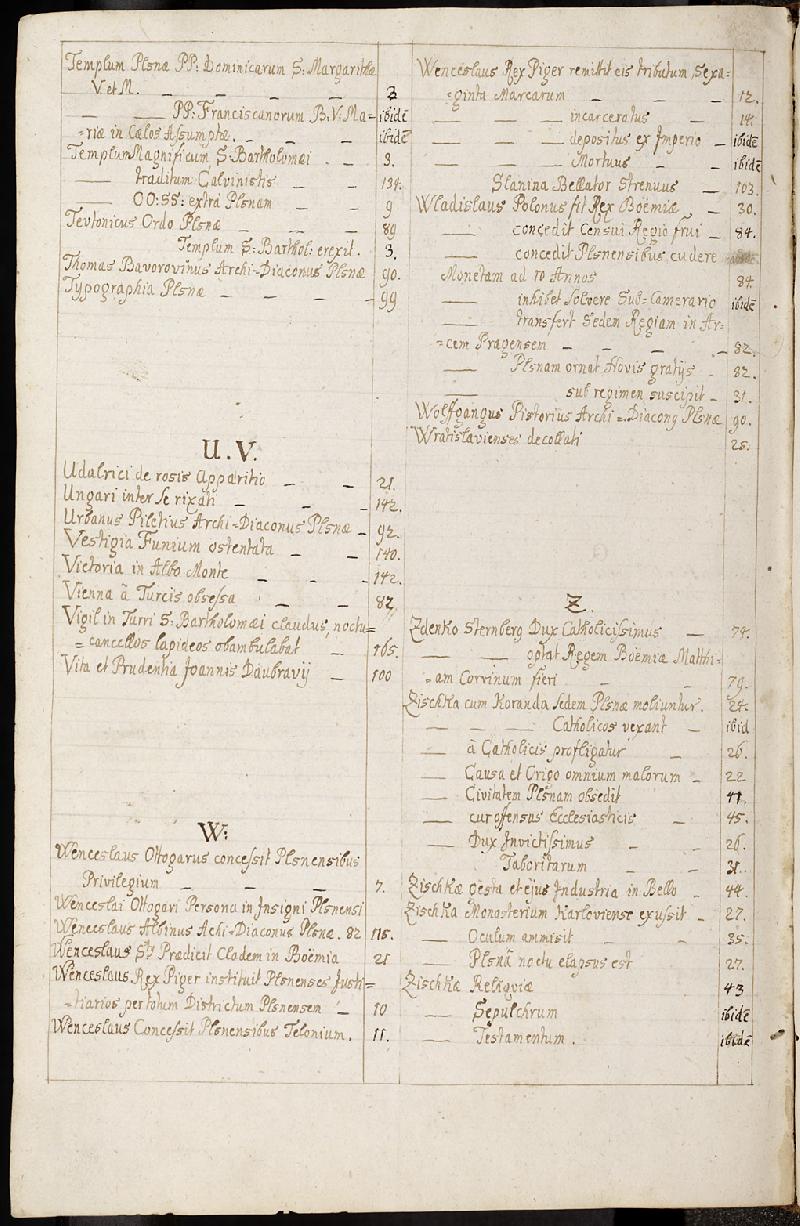 Templum Plsnæ PP: Dominicarum S: Margarithæ
V. et M. _ _ _ 3
_ _ PP: Franciscanorum B. V. Ma- ibidē
=riæ in Cælos Assumptæ. _ _ ibidē
Templum Magnificum S: Bartholomæi _ _ 3.
_ traditum Calvinistis _ _ 134.
_ OO:SS: extra Plsnam _ _ 9
Teutonicus Ordo Plsnæ _ _ _ 89
Templum S: Barthol: erexit. _ 3.
Thomas Bavorovinus Archi-Diaconus Plsnæ 90.
Typographia Plsnæ _ _ _ _ 99
U. V.
Udalrici de rosis Apparitio _ _ 21.
Ungari inter se rixati _ _ _ 142.
Urbanus Piletius Archi-Diaconus Plsnæ _ 92.
Vestigia Funium ostentata _ _ 140.
Victoria in Albo Monte _ _ _ 142.
Vienna à Turcis obsessa _ _ _ 87.
Vigil in Turri S: Bartholomæi claudus, noctu=
=cancellos lapideos obambulabat _ 165.
Vita et Prudentia Joannis Daubravij _ 100
W:
Wenceslaus Ottogarus concessit Plsnensibus
Privilegium _ _ _ _ 7.
Wenceslai Ottogari Persona in Insigni Plsnensi
Wenceslaus Albinus Achi-Diaconus Plsnæ. 82 115.
Wenceslaus Sts Prædicit Cladem in Boëmia 21
Wenceslaus Rex Piger instituit Plsnenses Justi=
=tiarios per totum Districtum Plsnensem _ 10
Wenceslaus Concessit Plsnensibus Telonium. 11.
Wenceslaus Rex Piger remittit eis tributum Sexa=
=ginta Marcarum _ _ _ 12.
_ _ _ incarceratus _ 14.
_ _ _ depositus ex Imperio _ ibidē
_ _ _ Mortuus _ _ ibidē
Stanina Bellator Strenuus _ 103.
Wladislaus Polonus fit Rex Boëmiæ _ _ 30.
_ _ concedit Censui Regio frui _ 84.
_ _ concedit Plsnensibus cudere
Monetam ad 10 Annos 84.
_ inhibet Solvere Sub-Camerario ibidē
_ transfert Sedem Regiam in Ar=
=cem Pragensem _ _ _ _ 82.
_ Plsnam ornat Novis gratijs _ 82.
_ sub regimen suscipit _ 31.
Wolffgangus Pistorius Archi-Diacong Plsnæ 90.
Wratislavienses decollati 25.
Z.
Zdenko Sternberg Dux Catholicissimus _ 74.
_ _ optat Regem Boëmiæ Matthi-
=am Corvinum fieri _ _ _ 79.
Zischka cum Koranda sedem Plsnæ moliuntur. 24.
_ _ _ Catholicos vexant _ ibid
_ à Catholicis profligatur _ 26.
_ Causa et Origo omnium malorum _ 22
_ Civitatem Plsnam obsedit 41.
_ cur offensus Ecclesiasticis _ 45.
_ Dux Invictissimus _ _ 26.
_ Taboritarum _ 31.
Zischkæ gesta et ejus Industria in Bello _ 44.
Zischka Monasterium Karloviense exussit _ 27.
_ Oculum ammisit _ _ 35.
_ Plsnâ noctu elapsus est 27.
Zischkæ Reliqviæ 43
_ Sepulchrum ibidē
_ Testamentum. ibidē